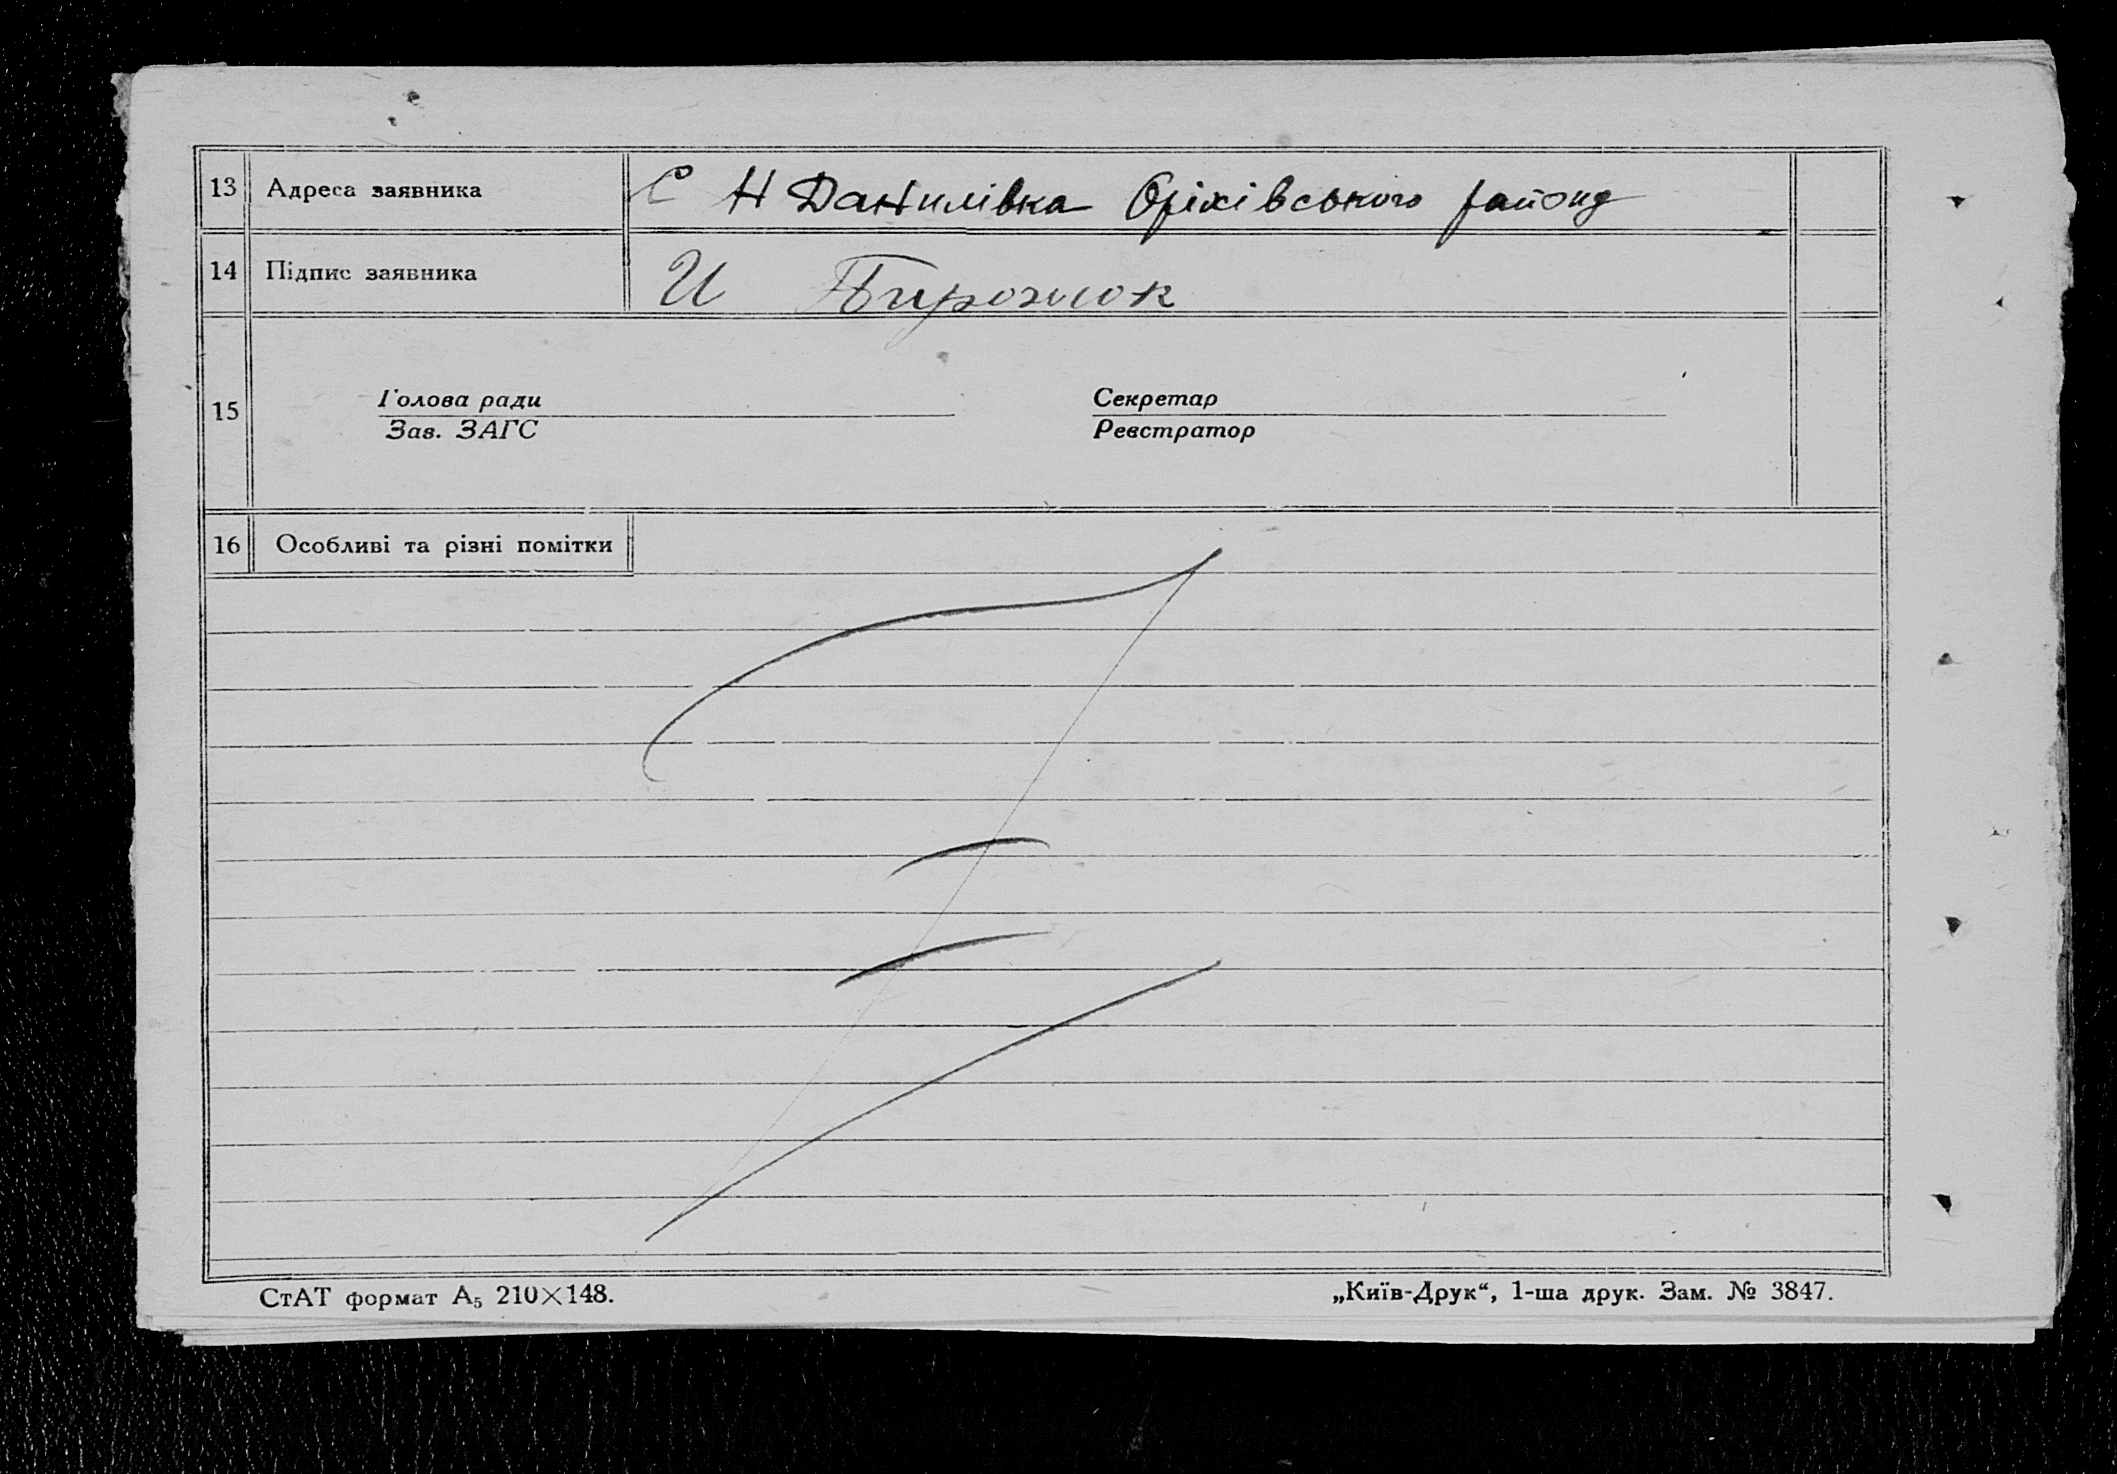 13 Адреса заявника С Н Данилівка Оріхівського району
14 Підпис заявника И Пирожок
15
Голова ради Секретар
Зав. ЗАГС Реєстратор
16 Особливі та різні помітки
СтАТ формат А5 210×148. „Київ-Друк“, 1-ша друк. Зам. № 3847.